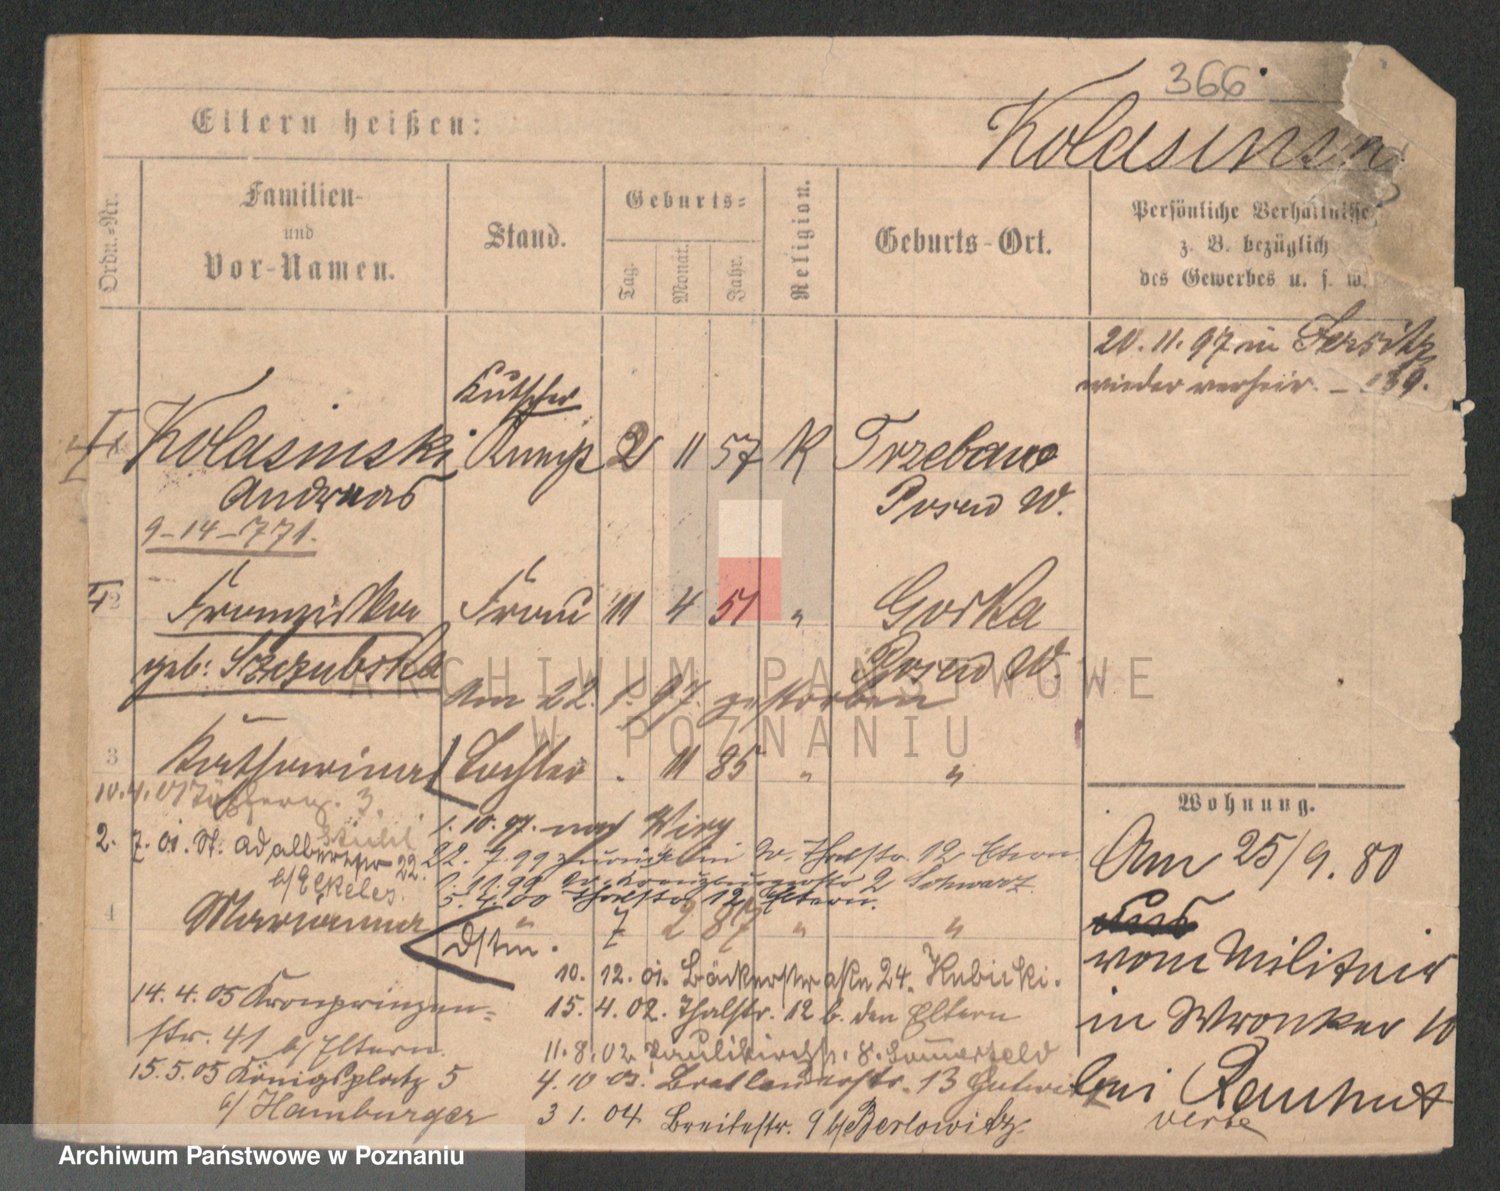 366
Eltern heißen:
Kolasinski
Ordn.-Nr.
Familien-
und
Vor-Namen.
Stand.
Geburts-
Tag.
Monat.
Jahr.
Religion.
Geburts-Ort.
Persönliche Verhältnisse
z. B. bezüglich
des Gewerbes u. s. w.
20. 11. 97 in Jersitz
wieder verheir.
Kutscher
Kolasinski Knecht 2 11 57 K Trzebaw
Andreas Posen W.
9-14-771.
2 Franziska Frau 11 4 51 " Gorka
geb: Szczubska Posen W.
Am 22. 1. 97. gestorben
3 Katharina Tochter . 11 85 " "
10. 4. 01 Töpferg. 3.
1. 10. 97. nach Wiry
2. 7. 01. St. Adalbertstr 22.
b/ Ekeles.
22. 7. 99 zurück in Thalstr. 12 Eltern
1. 11. 99 2 Schwarz
5. 4. 00 Thalstr 12 Eltern.
4 Marianna " 7 2 87 " "
Dstm.
10. 12. 01. Bäckerstraße 24. Kubicki.
14. 4. 05 Kronprinzen-
str. 41 b/ Eltern.
15. 4. 02. Thalstr. 12 b. den Eltern
11. 8. 02 Paulikirchstr. 8. Sommerfeld
15. 5. 05 Königsplatz 5
b/ Hamburger
4. 10 03. Breslauerstr. 13
3 1. 04 Breitestr. 9 b/ Berlowitz.
Wohnung.
Am 25/9. 80
vom Militair
in Wronker 10
bei Rauhut
ARCHIWUM PAŃSTWOWE
W POZNANIU
Archiwum Państwowe w Poznaniu